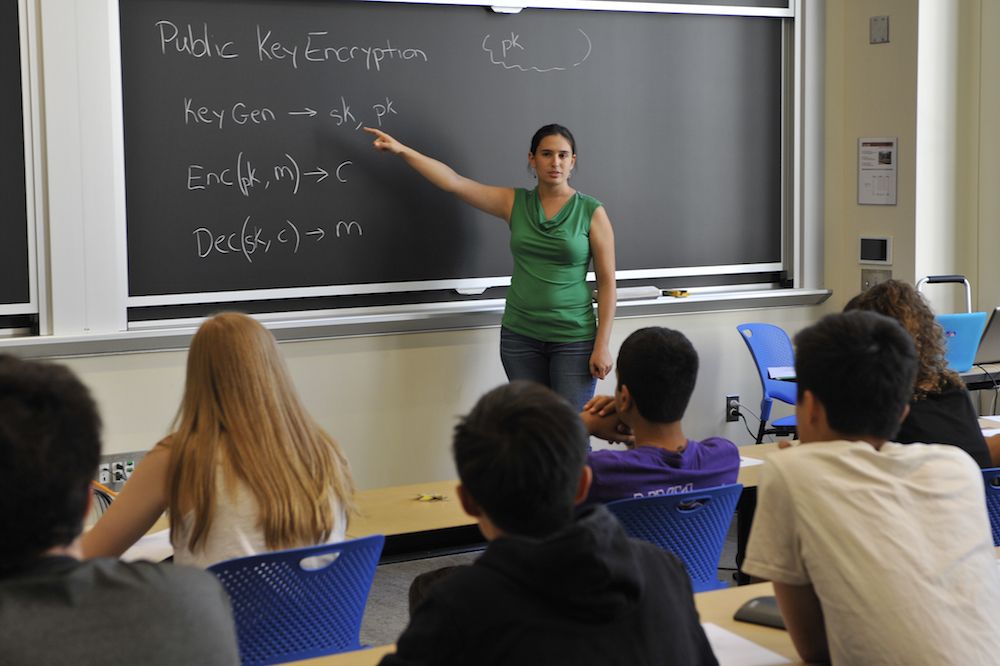 Public Key Encryption
pk
KeyGen → sk, pk
Enc(pk, m) → c
Dec(sk, c) → m